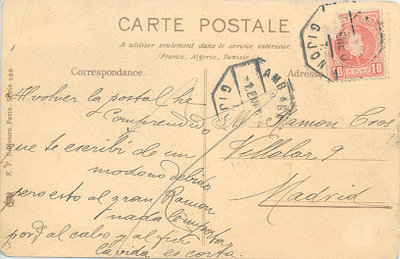 CARTE POSTALE
A utiliser seulement dans le service intérieur.
(France, Algérie, Tunisie
Correspondance.
Adresse
GIJON
10 10
AMB
GIJ
1 ENE
Al volver la postal he
comprendido
que te escribí de un
modo no debido
pero esto al gran Ramon
nada le importa
porq al cabo y al fin
la vida es corta.
Ramon Cros
Villalar 9
Madrid
Paris. Série 568